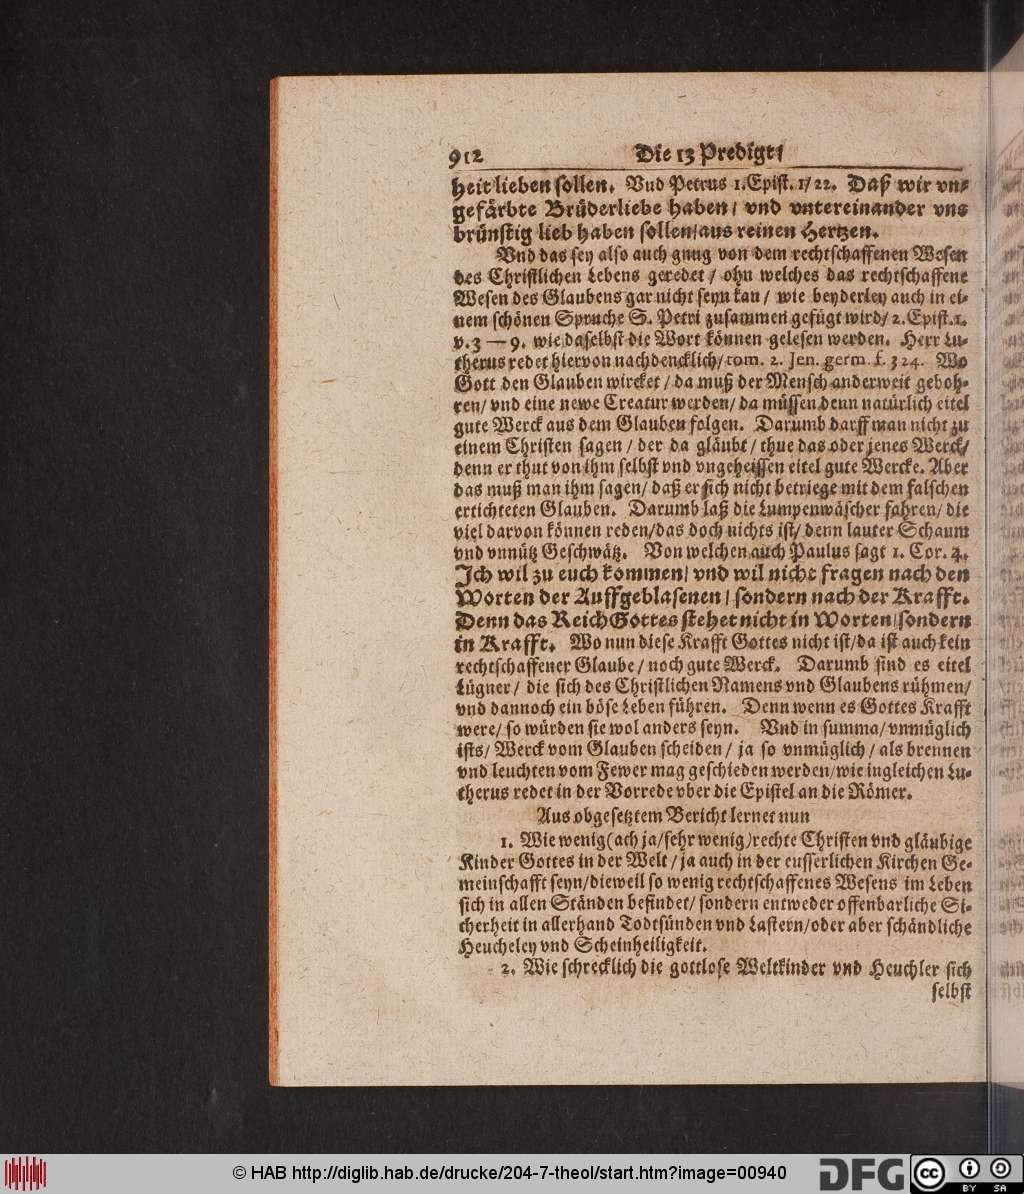 912 Die 13 Predigt/
heit lieben sollen. Vnd Petrus 1. Epist. 1/22. Daß wir vn-
gefärbte Brüderliebe haben/ vnd vntereinander vns
brünstig lieb haben sollen/aus reinen Hertzen.
Vnd das sey also auch gnug von dem rechtschaffenen Wesen
des Christlichen Lebens geredet/ ohn welches das rechtschaffene
Wesen des Glaubens gar nicht seyn kan/ wie beyderley auch in ei-
nem schönen Spruche S. Petri zusammen gefügt wird/ 2. Epist. 1.
v. 3 — 9. wie daselbst die Wort können gelesen werden. Herr Lu-
therus redet hiervon nachdencklich/ tom. 2. Jen. germ. f. 324. Wo
Gott den Glauben wircket/ da muß der Mensch anderweit geboh-
ren/ vnd eine newe Creatur werden/ da müssen denn natürlich eitel
gute Werck aus dem Glauben folgen. Darumb darff man nicht zu
einem Christen sagen/ der da gläubt/ thue das oder jenes Werck/
denn er thut von ihm selbst vnd vngeheissen eitel gute Wercke. Aber
das muß man ihm sagen/ daß er sich nicht betriege mit dem falschen
ertichteten Glauben. Darumb laß die Lumpenwäscher fahren/ die
viel darvon können reden/das doch nichts ist/ denn lauter Schaum
vnd vnnütz Geschwätz. Von welchen auch Paulus sagt 1. Cor. 4.
Ich wil zu euch kommen/ vnd wil nicht fragen nach den
Worten der Auffgeblasenen/ sondern nach der Krafft.
Denn das Reich Gottes stehet nicht in Worten/sondern
in Krafft. Wo nun diese Krafft Gottes nicht ist/da ist auch kein
rechtschaffener Glaube/ noch gute Werck. Darumb sind es eitel
Lügner/ die sich des Christlichen Namens vnd Glaubens rühmen/
vnd dannoch ein böse Leben führen. Denn wenn es Gottes Krafft
were/ so würden sie wol anders seyn. Vnd in summa/ vnmüglich
ists/ Werck vom Glauben scheiden/ ja so vnmüglich/ als brennen
vnd leuchten vom Fewer mag geschieden werden/wie ingleichen Lu-
therus redet in der Vorrede vber die Epistel an die Römer.
Aus obgesetztem Bericht lernet nun
1. Wie wenig (ach ja/sehr wenig) rechte Christen vnd gläubige
Kinder Gottes in der Welt/ ja auch in der eusserlichen Kirchen Ge-
meinschafft seyn/dieweil so wenig rechtschaffenes Wesens im Leben
sich in allen Ständen befindet/ sondern entweder offenbarliche Si-
cherheit in allerhand Todtsünden vnd Lastern/oder aber schändliche
Heucheley vnd Scheinheiligkeit.
2. Wie schrecklich die gottlose Weltkinder vnd Heuchler sich
selbst
© HAB http://diglib.hab.de/drucke/204-7-theol/start.htm?image=00940
DFG
cc BY SA